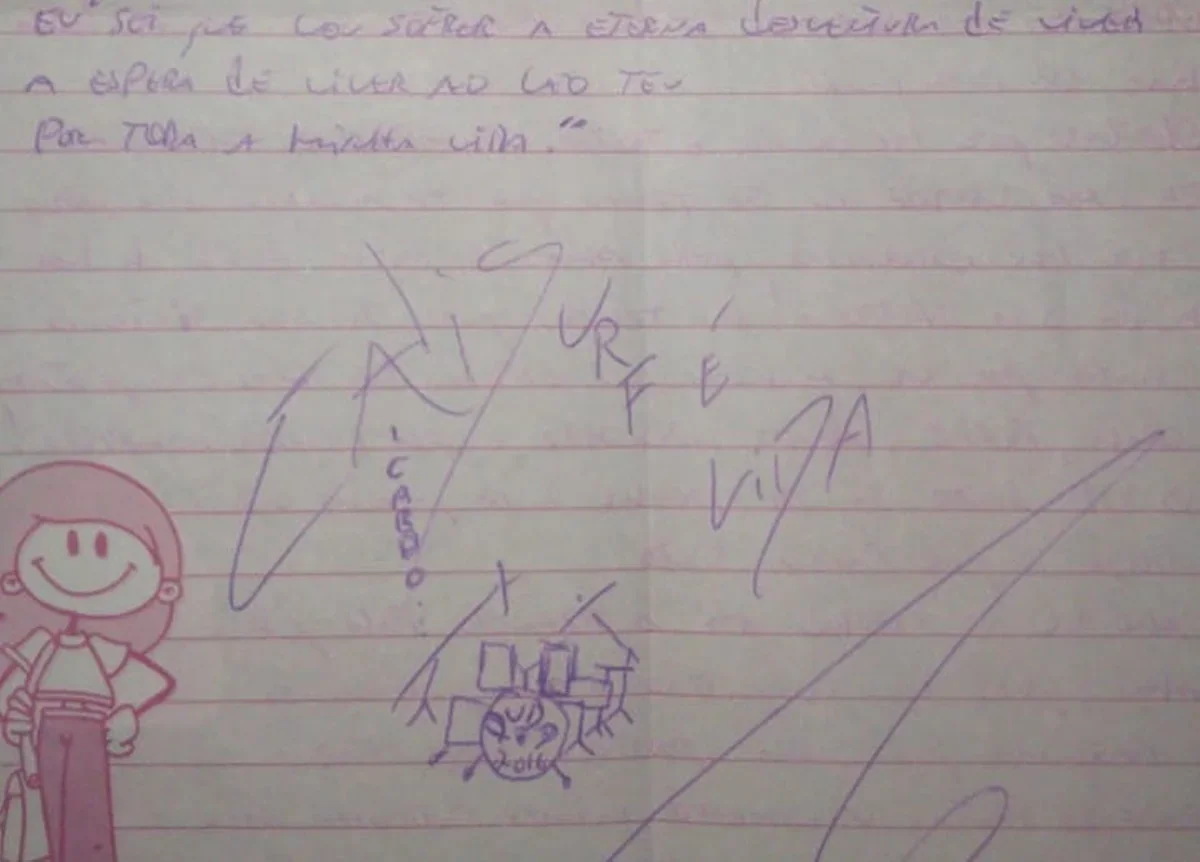 EU SEI QUE VOU SOFRER A ETERNA DESVENTURA DE VIVER
A ESPERA DE VIVER AO LADO TEU
POR TODA A MINHA VIDA."
SURF É
VIDA
2016